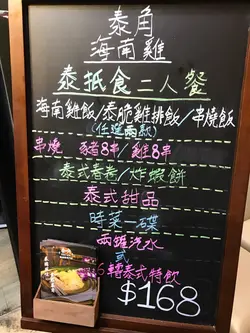 泰角
海南雞
泰抵食二人餐
海南雞飯/泰脆雞排飯/串燒飯
(任選兩款)
串燒 豬8串/雞8串
泰式春卷/炸蝦餅
泰式甜品
時菜一碟
兩罐汽水
或
轉泰式特飲
$168